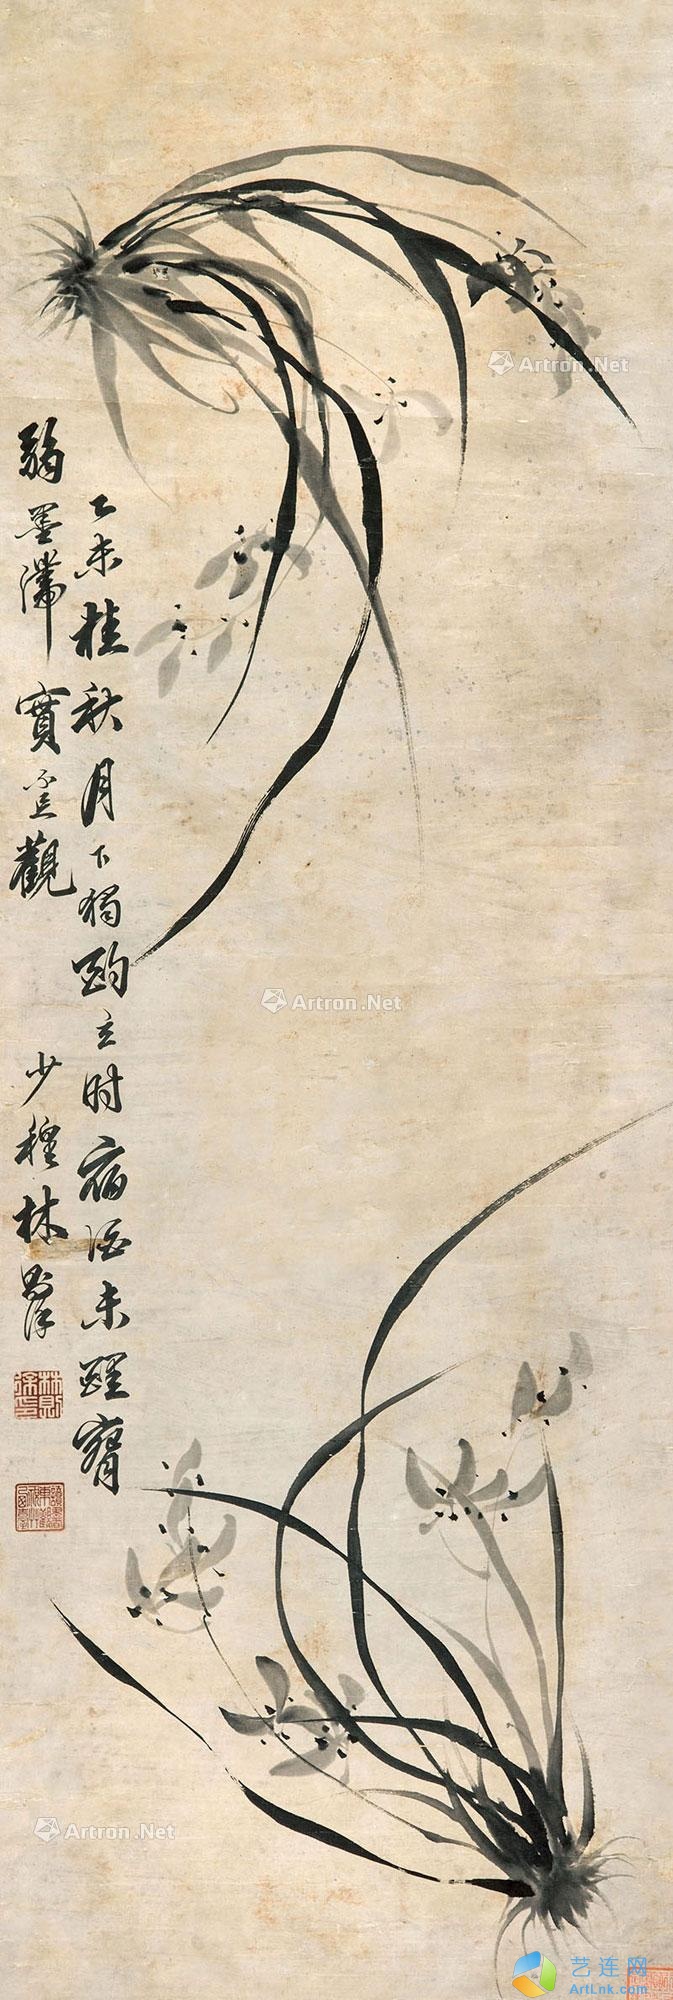 乙未桂秋月下獨酌立时宿酒未醒腕
弱墨滯實不足觀
少穆林則徐
林則徐印
Artron.Net
Artron.Net
Artron.Net
艺连网
ArtLnk.com